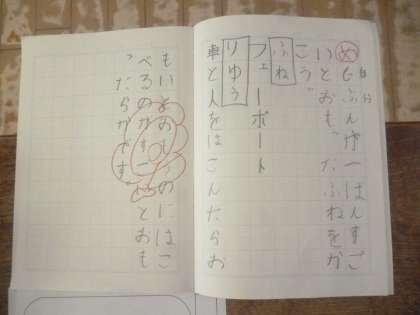 めじぶんが一ばんすご
いとおもったふねをか
こう。
ふね
フェーボート
りゆう
車と人をはこんだらお
もいとおもうのにはこ
べるのがすごいとおも
ったからです。
自分